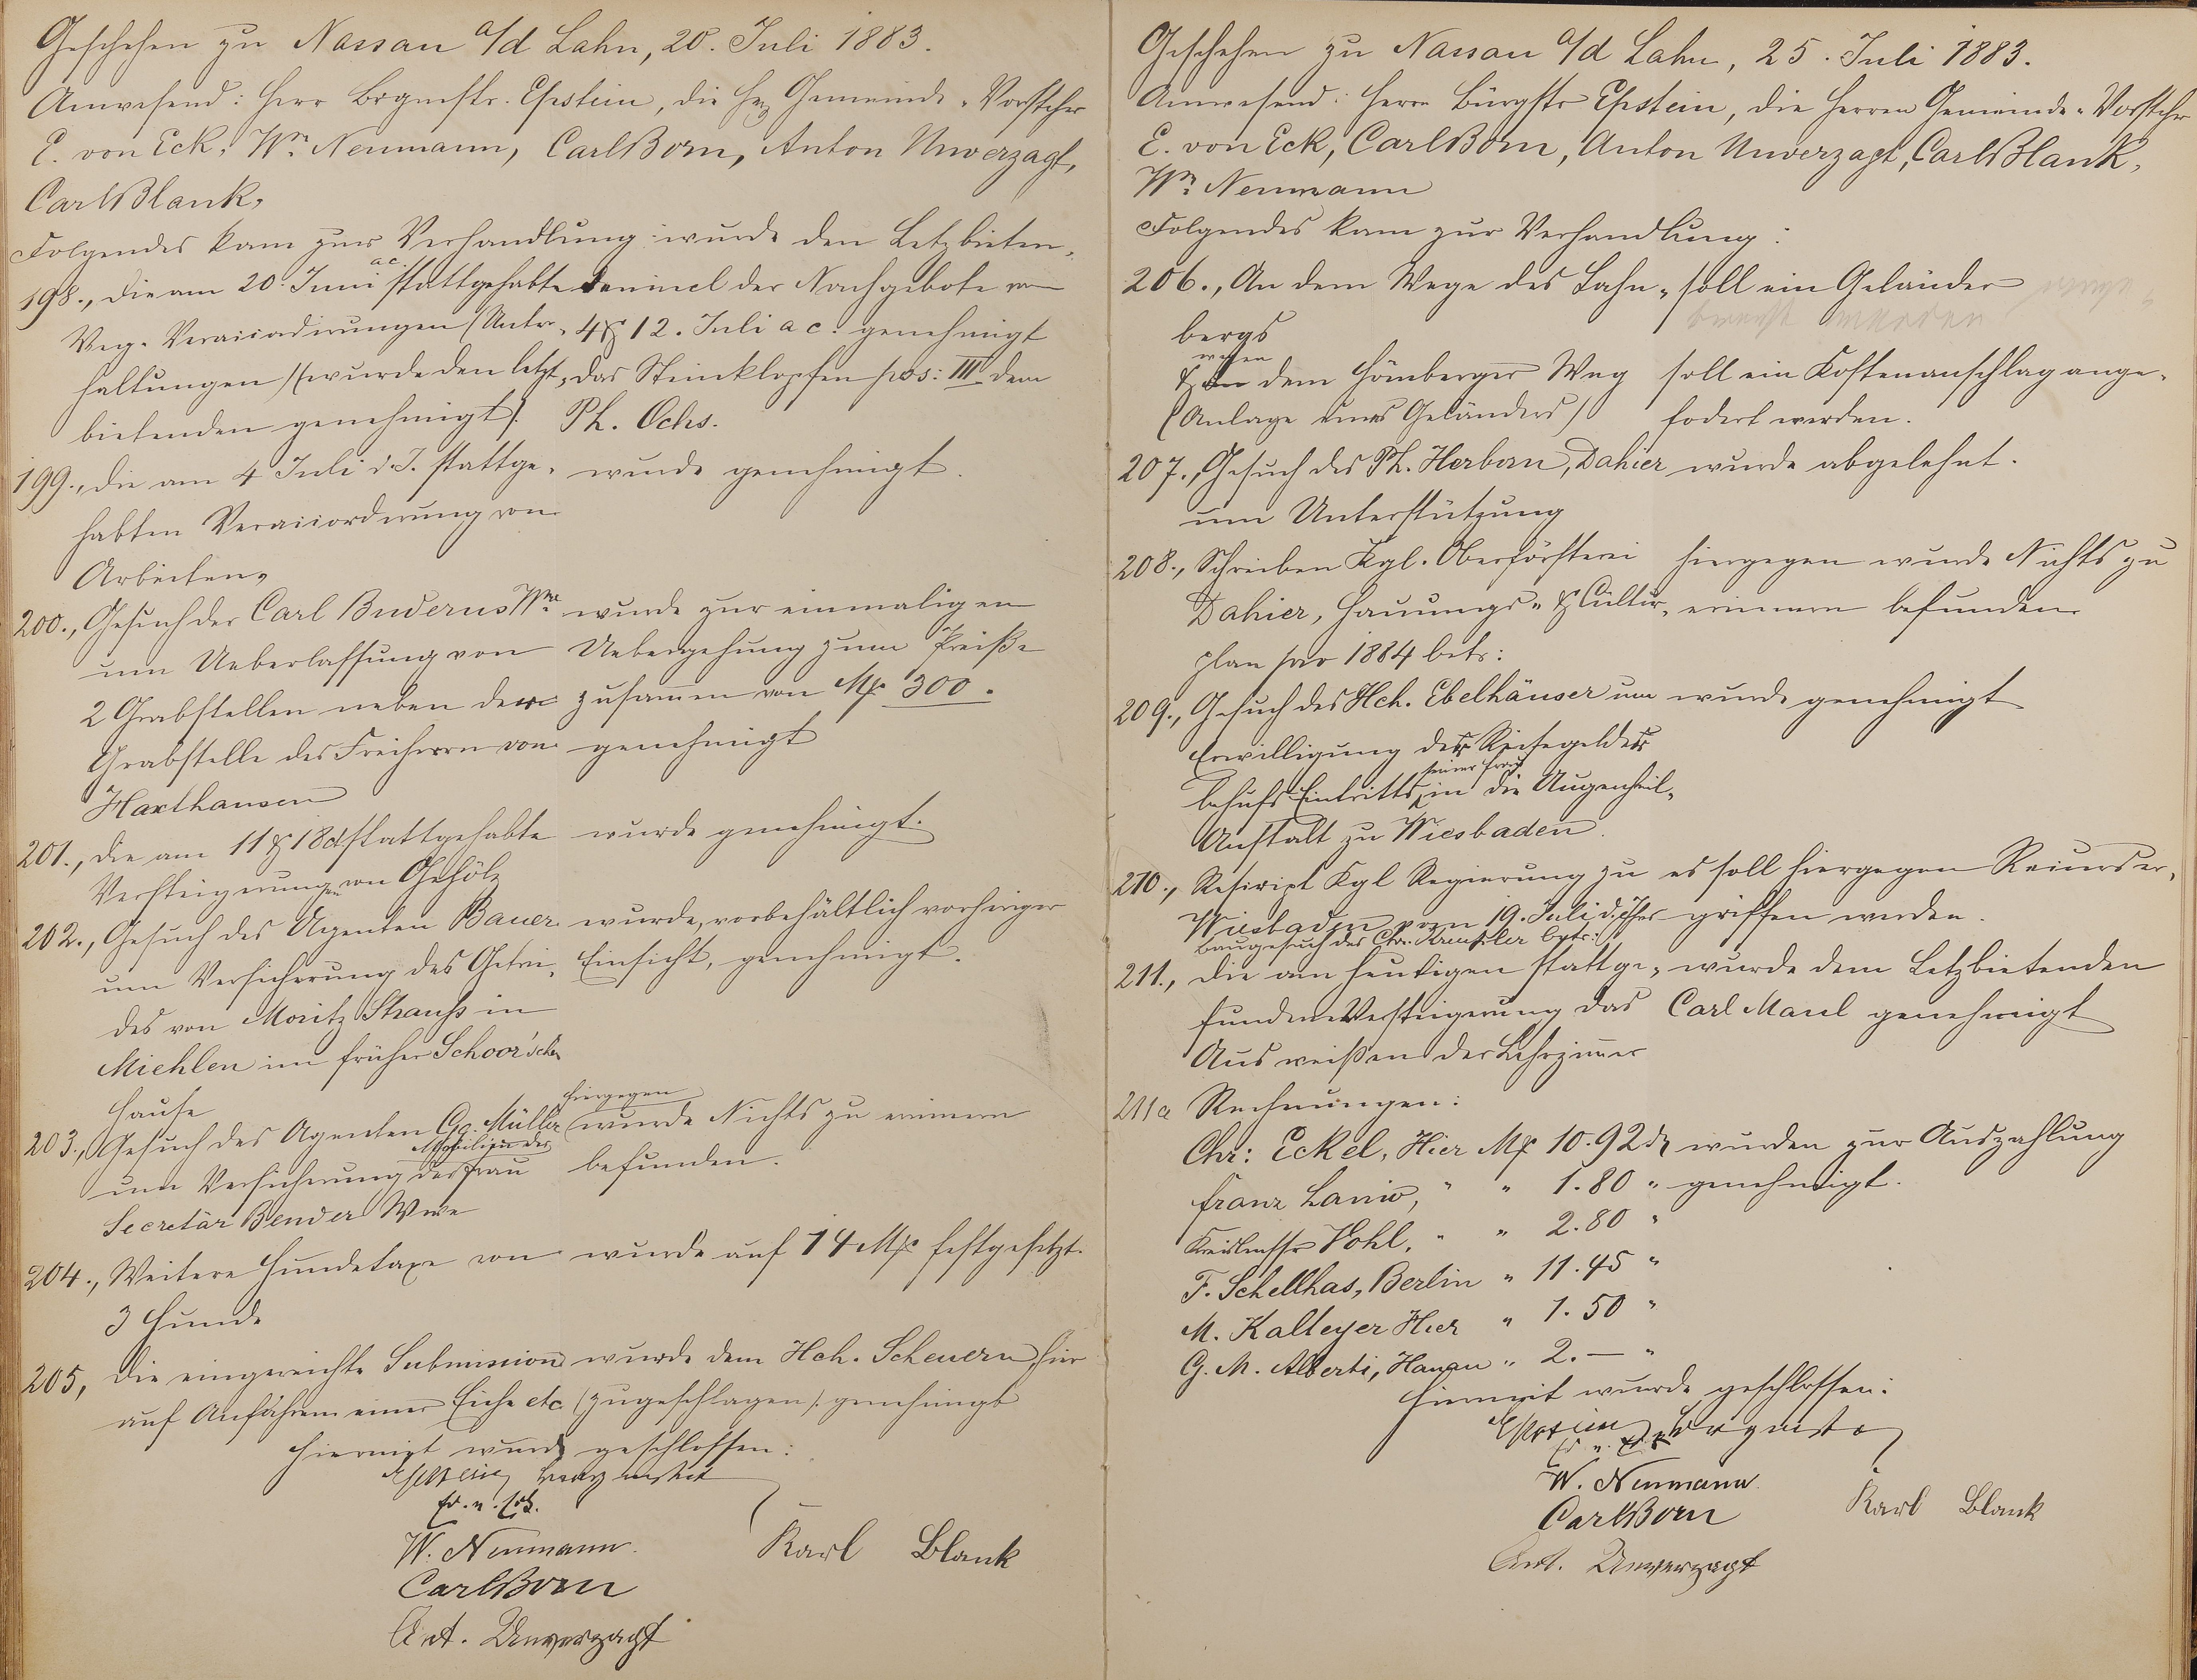 Geschehen zu Nassau a/d Lahn, 20. Juli 1883.
Anwesend: Herr Brgmstr. Epstein, die Hr. Gemeinde-Vorsteher
E. von Eck, Wm. Neumann, Carl Born, Anton Unverzagt,
Carl Blank,
Folgendes kam zur Verhandlung: wurde den Letzbieten-
198., die am 20. Juni a c. stattgehabte incl der Nachgebote vom
Weg- (Unter- 4 & 12. Juli a c. genehmigt
haltungen) (wurde den letzt- das Steinklopfen pos: III dem
bietenden genehmigt). Ph. Ochs.
199., die am 4 Juli d. J. stattge- wurde genehmigt.
habten Veraccordirung von
Arbeiten,
200., Gesuch der Carl Buderus Wwe wurde zur einmaligen
um Ueberlassung von Uebergehung zum Preiße
2 Grabstellen neben der zusammen von Mk 300.
Grabstelle des Freiherrn von genehmigt
Haxthausen
201., die am 11 & 18 d. stattgehabte wurde genehmigt.
Versteigerungen von Gehölz
202., Gesuch des Agenten Bauer wurde, vorbehältlich vorheriger
um Versicherung des Getrei- Einsicht, genehmigt.
des von Moritz Strauß in
Miehlen im früher Schoor'schen
Hause
203., Gesuch des Agenten Gg. Müller hiergegen wurde Nichts zu erinnern
um Versicherung der Mobilien der Frau befunden.
Secretär Bender Wwe
204., Weitere Hundetaxe von wurde auf 14 Mk festgesetzt.
3 Hunde
205, Die eingereichte Submission wurde dem Hch. Scheuern, hier
auf Anfahren einer Eiche etc (zugeschlagen) genehmigt
Hiermit wurde geschlossen:
Epstein Bürgermeister
Ed. v. Eck.
W. Neumann. Karl Blank
Carl Born
Ant. Unverzagt
Geschehen zu Nassau a/d Lahn, 25. Juli 1883.
Anwesend: Herr Bürgstr Epstein, die Herren Gemeinde-Vorsteher
E. von Eck, Carl Born, Anton Unverzagt, Carl Blank,
Wm. Neumann
Folgendes kam zur Verhandlung:
206., An dem Wege des Lahn- soll ein Geländer
bergs
wegen
& dem Hömberger Weg soll ein Kostenanschlag ange-
(Anlage eines Geländers) fodert werden.
207., Gesuch des Ph. Herborn, Dahier wurde abgelehnt.
um Unterstützung
208., Schreiben Kgl. Oberförsterei hiergegen wurde Nichts zu
Dahier, Hauungs- & Cultur- erinnern befunden
plan pro 1884 betr:
209., Gesuch des Hch. Ebelhäuser um wurde genehmigt
Bewilligung des Reisegeldes
behufs Eintritts seiner Frau in die Augenheil-
Anstalt zu Wiesbaden.
210., Rescript Kgl Regierung zu es soll hiergegen Recurs er-
Wiesbaden vom 19. Juli d. Jhrs griffen werden.
Baugesuch des Chr. betr:
211., die am heutigen stattge- wurde dem Letzbietenden
fundene Versteigerung das Carl Maul genehmigt
Ausweißen der Lehrzimmer
211a Rechnungen:
Chr: Eckel, Hier Mk 10.92 ₰ wurden zur Auszahlung
Franz Lanio, " " 1.80 " genehmigt.
Pohl, " " 2.80 "
F. Schellhas, Berlin " 11.45 "
M. Kalteyer Hier " 1.50 "
G. M. Alberti, Hanau " 2.— "
Hiermit wurde geschlossen:
Epstein Brgmstr
Ed v. Eck
W. Neumann
Carl Born Karl Blank
Ant. Unverzagt